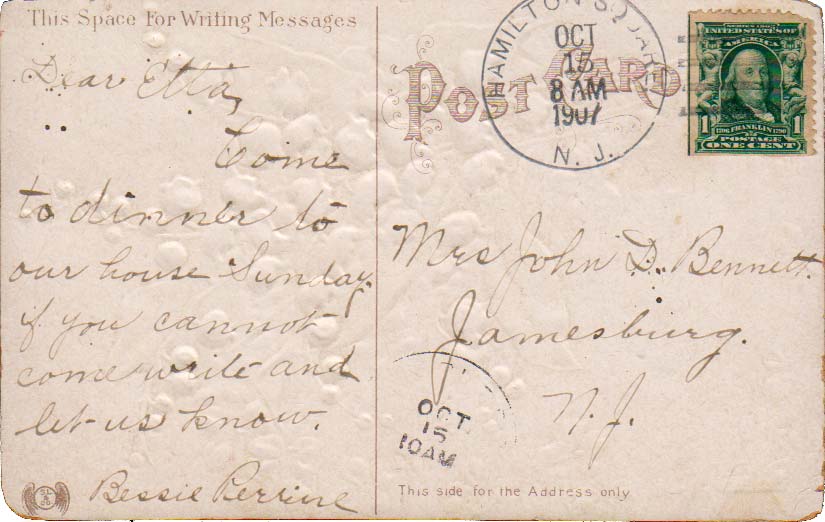 This Space For Writing Messages
Dear Etta,
Come
to dinner to
our house Sunday.
if you cannot
come write and
let us know.
Bessie Perrine
POST CARD
HAMILTON SQUARE
OCT
15
8 AM
1907
N. J.
SERIES 1902
UNITED STATES OF
AMERICA
1706 FRANKLIN 1790
1 1
POSTAGE
ONE CENT
Mrs John D. Bennett.
Jamesburg.
N. J.
OCT
15
10AM
This side for the Address only